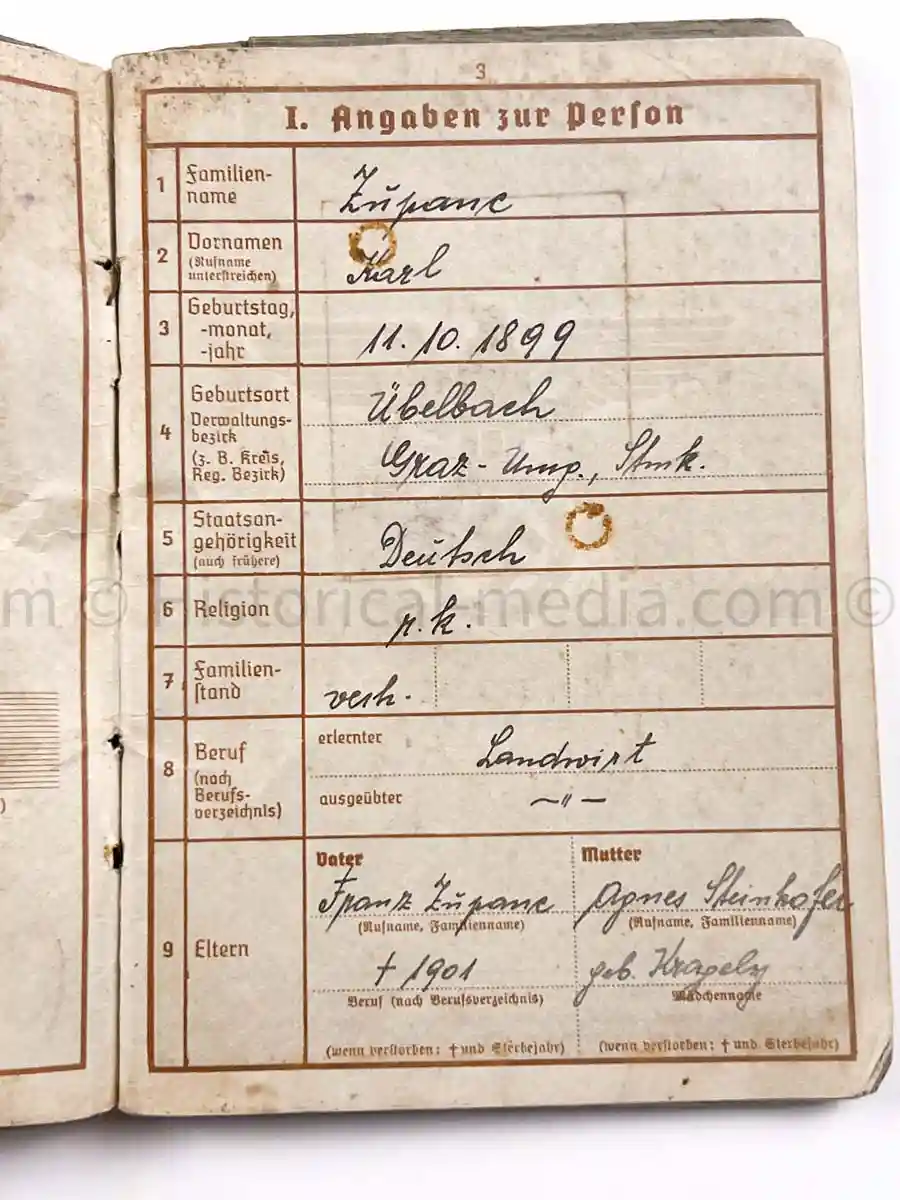 3
I. Angaben zur Person
1 Familien-
name
Zupanc
2 Vornamen
(Rufname
unterstreichen)
Karl
3 Geburtstag,
-monat,
-jahr
11. 10. 1899
4 Geburtsort
Verwaltungs-
bezirk
(z. B. Kreis,
Reg. Bezirk)
Übelbach
Graz-Umg., Stmk.
5 Staatsan-
gehörigkeit
(auch frühere)
Deutsch
m © Historical-media.com ©
6 Religion
r. k.
7 Familien-
stand
verh.
8 Beruf
(nach
Berufs-
verzeichnis)
erlernter Landwirt
ausgeübter —"—
9 Eltern
Vater
Franz Zupanc
(Rufname, Familienname)
† 1901
Beruf (nach Berufsverzeichnis)
(wenn verstorben: † und Sterbejahr)
Mutter
Agnes Steinhofer
(Rufname, Familienname)
geb.
Mädchenname
(wenn verstorben: † und Sterbejahr)
)